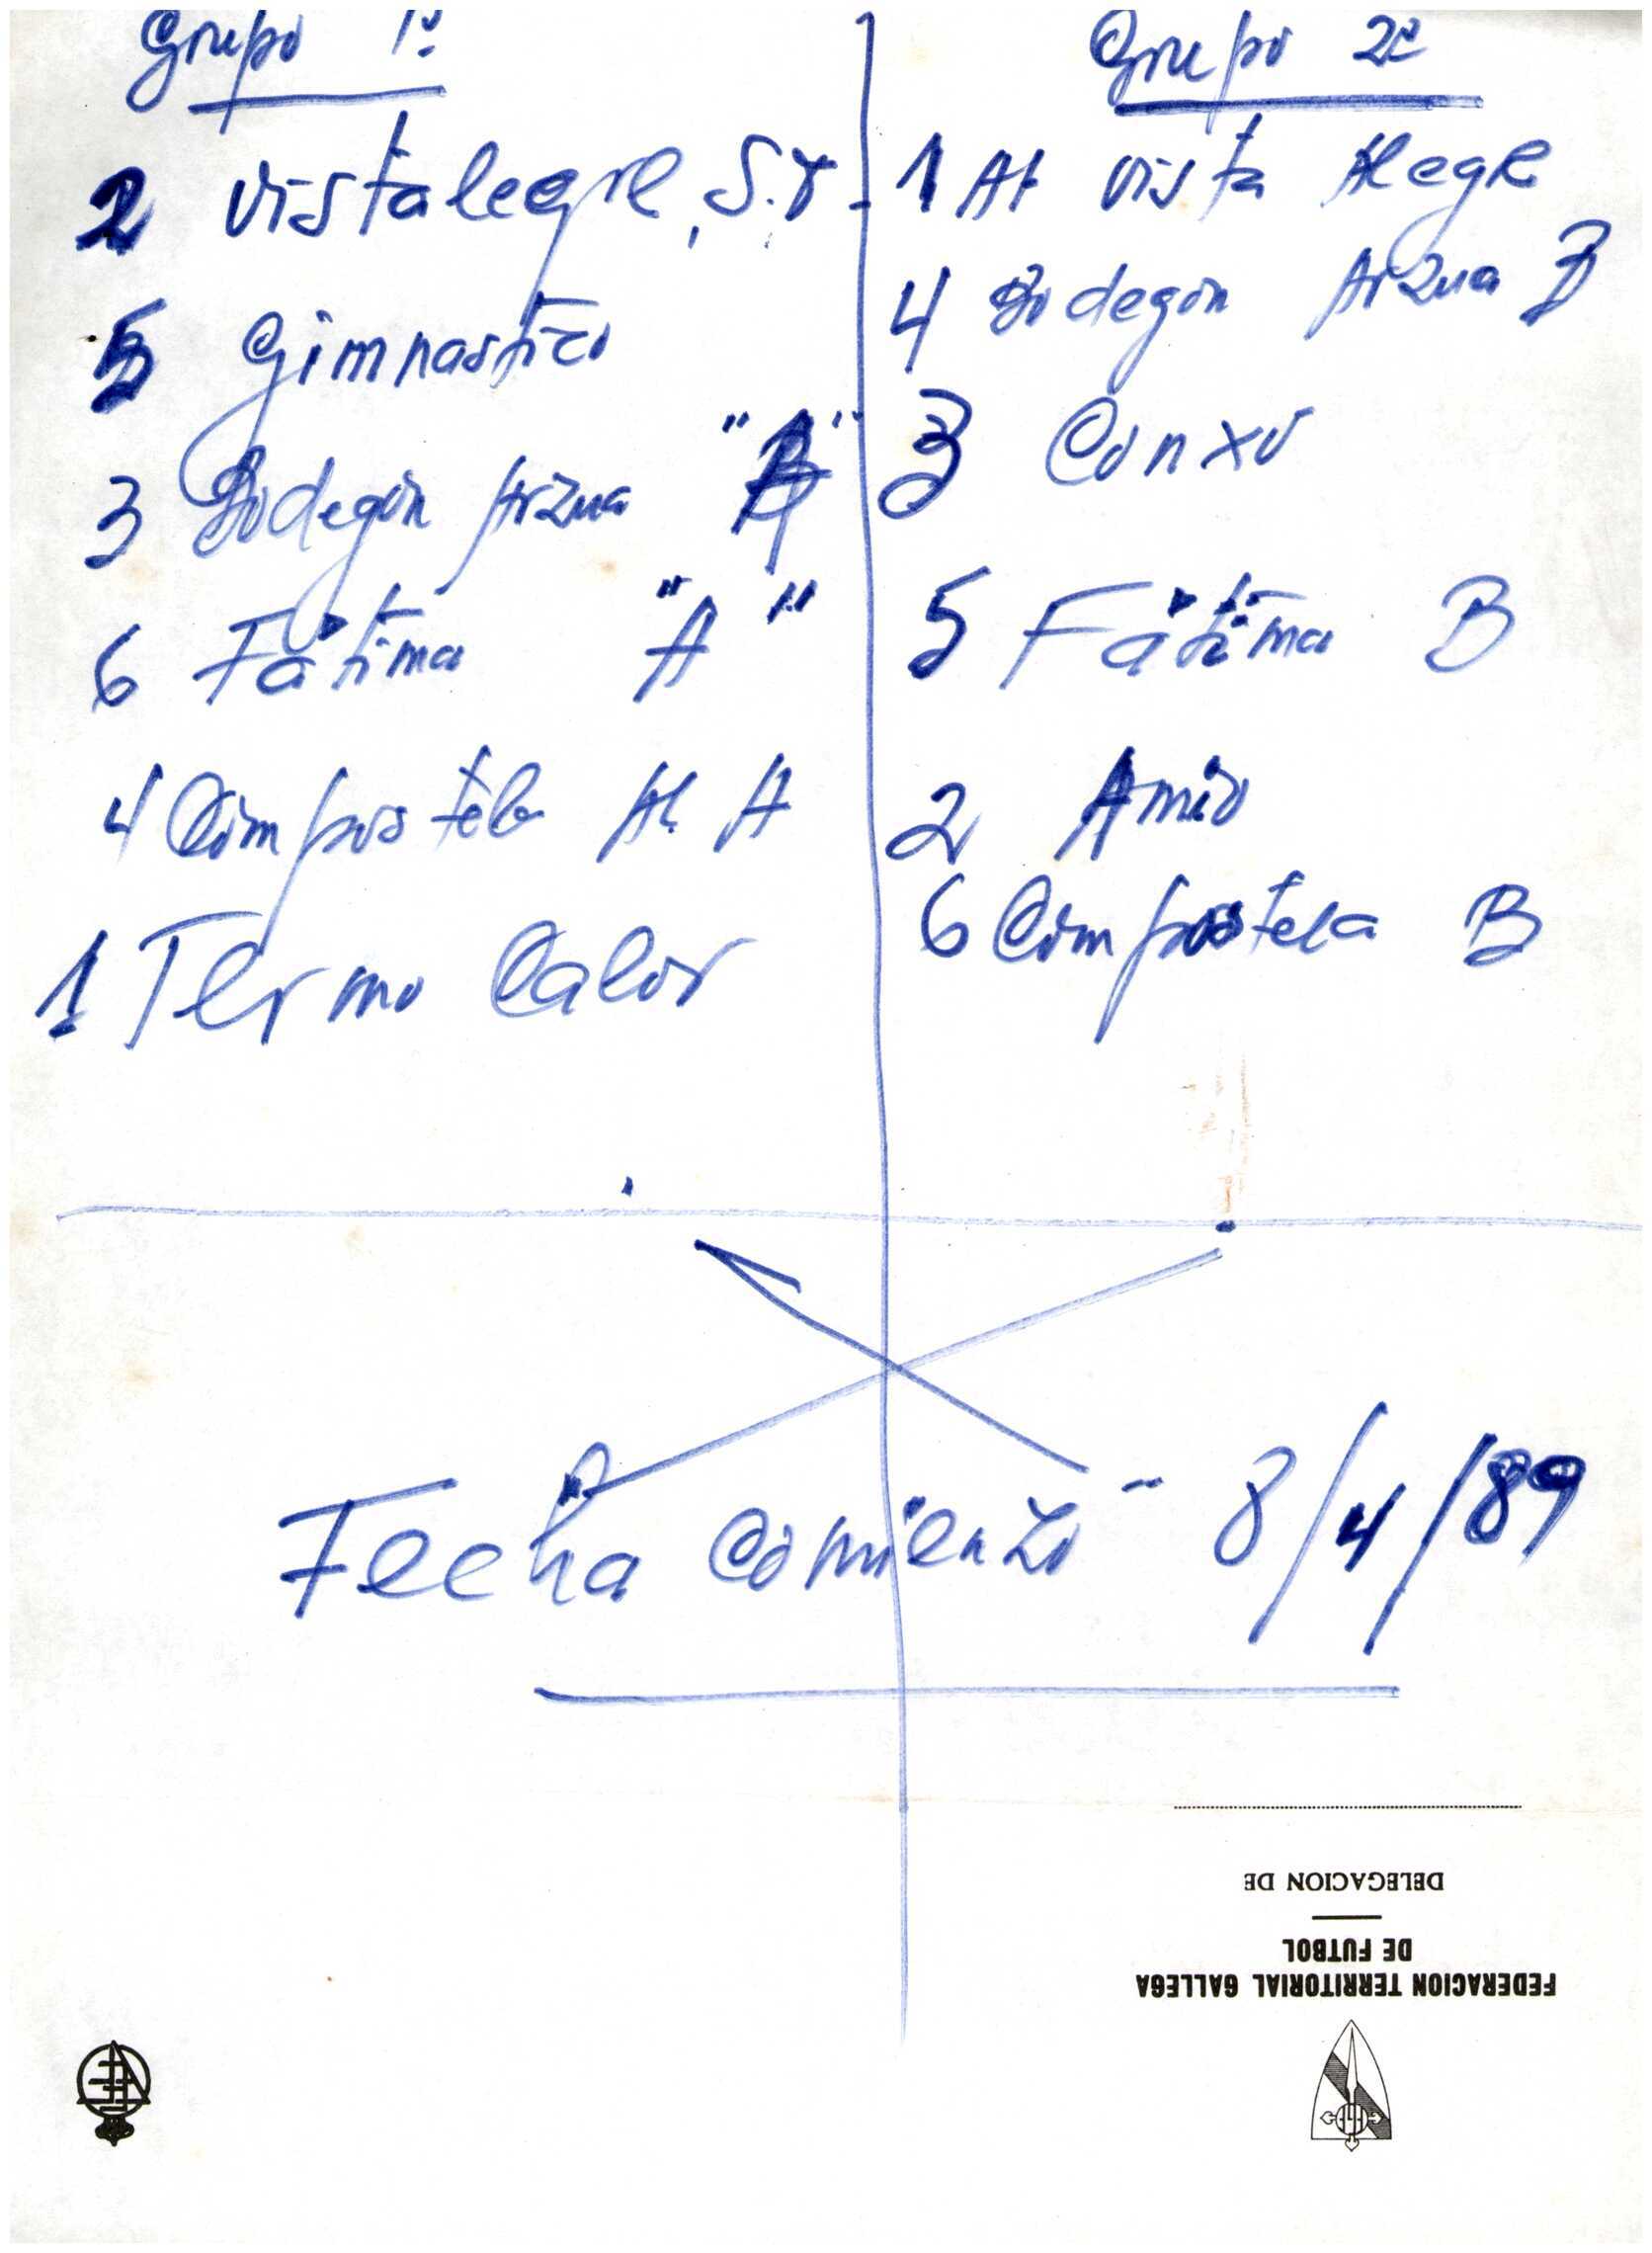 Grupo 1º
2 Vistalegre, S.D
5 Gimnastico
3 Bodegón Arzua "A"
6 Fátima "A"
4 Compostela At. A
1 Termo Calor
Grupo 2º
1 At Vista Alegre
4 Bodegón Arzua B
3 Conxo
5 Fátima B
2 Amio
6 Compostela B
Fecha Comienzo - 8/4/89
FEDERACION TERRITORIAL GALLEGA
DE FUTBOL
DELEGACION DE